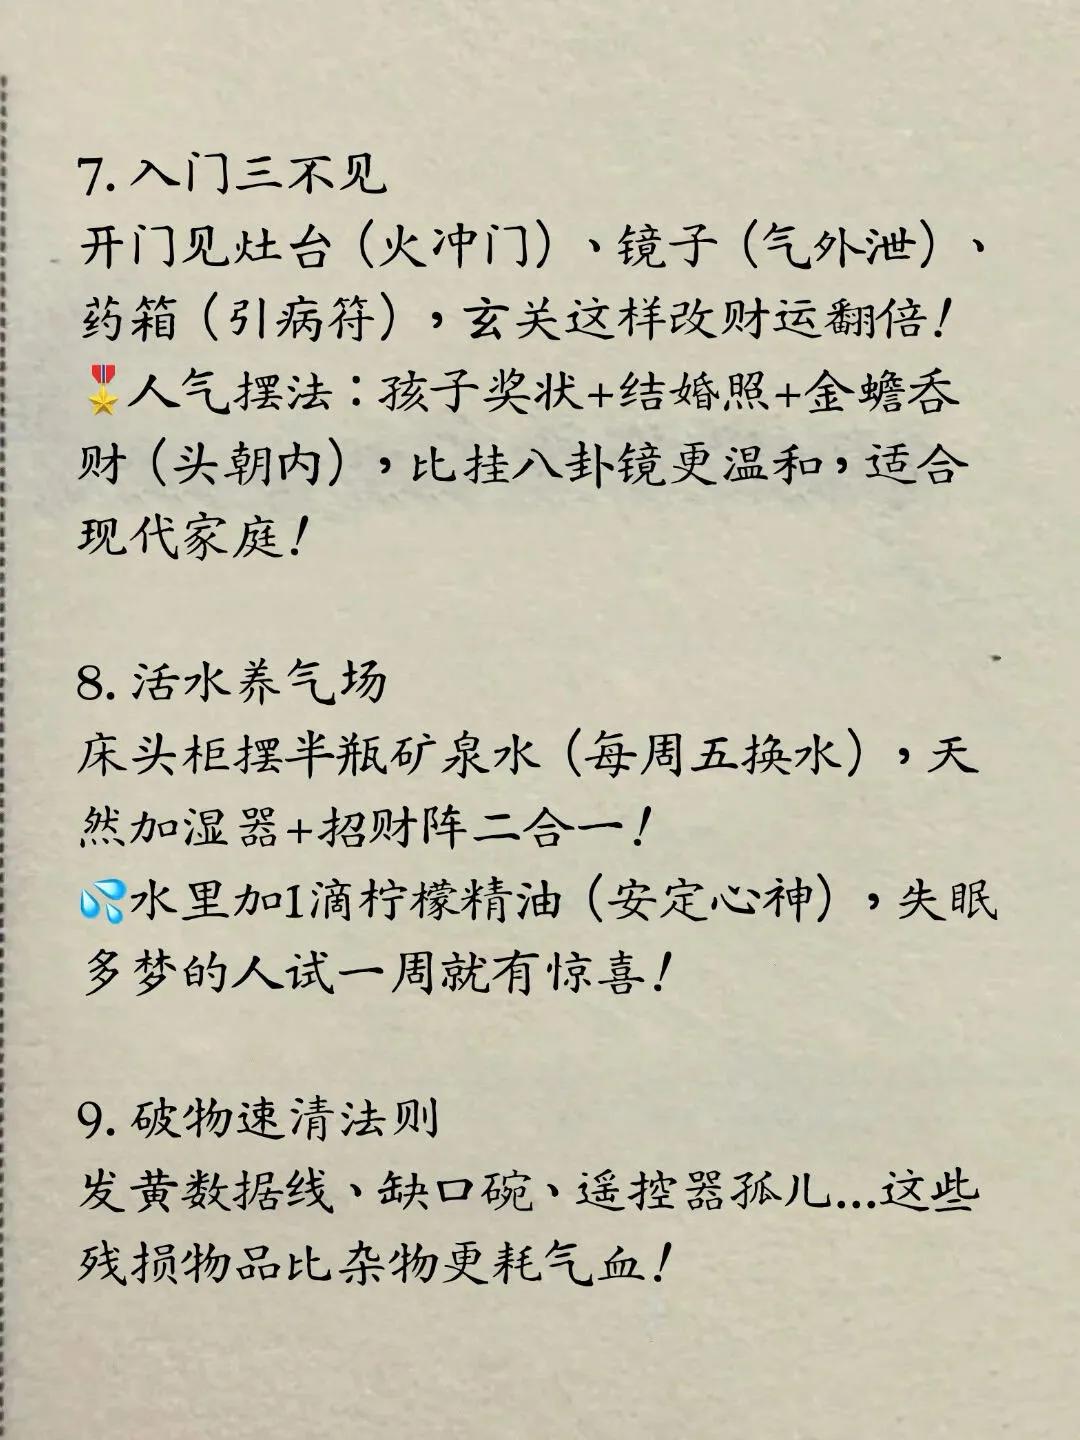 7. 入门三不见
开门见灶台（火冲门）、镜子（气外泄）、
药箱（引病符），玄关这样改财运翻倍！
🎖人气摆法：孩子奖状+结婚照+金蟾吞
财（头朝内），比挂八卦镜更温和，适合
现代家庭！
8. 活水养气场
床头柜摆半瓶矿泉水（每周五换水），天
然加湿器+招财阵二合一！
💦水里加1滴柠檬精油（安定心神），失眠
多梦的人试一周就有惊喜！
9. 破物速清法则
发黄数据线、缺口碗、遥控器孤儿...这些
残损物品比杂物更耗气血！